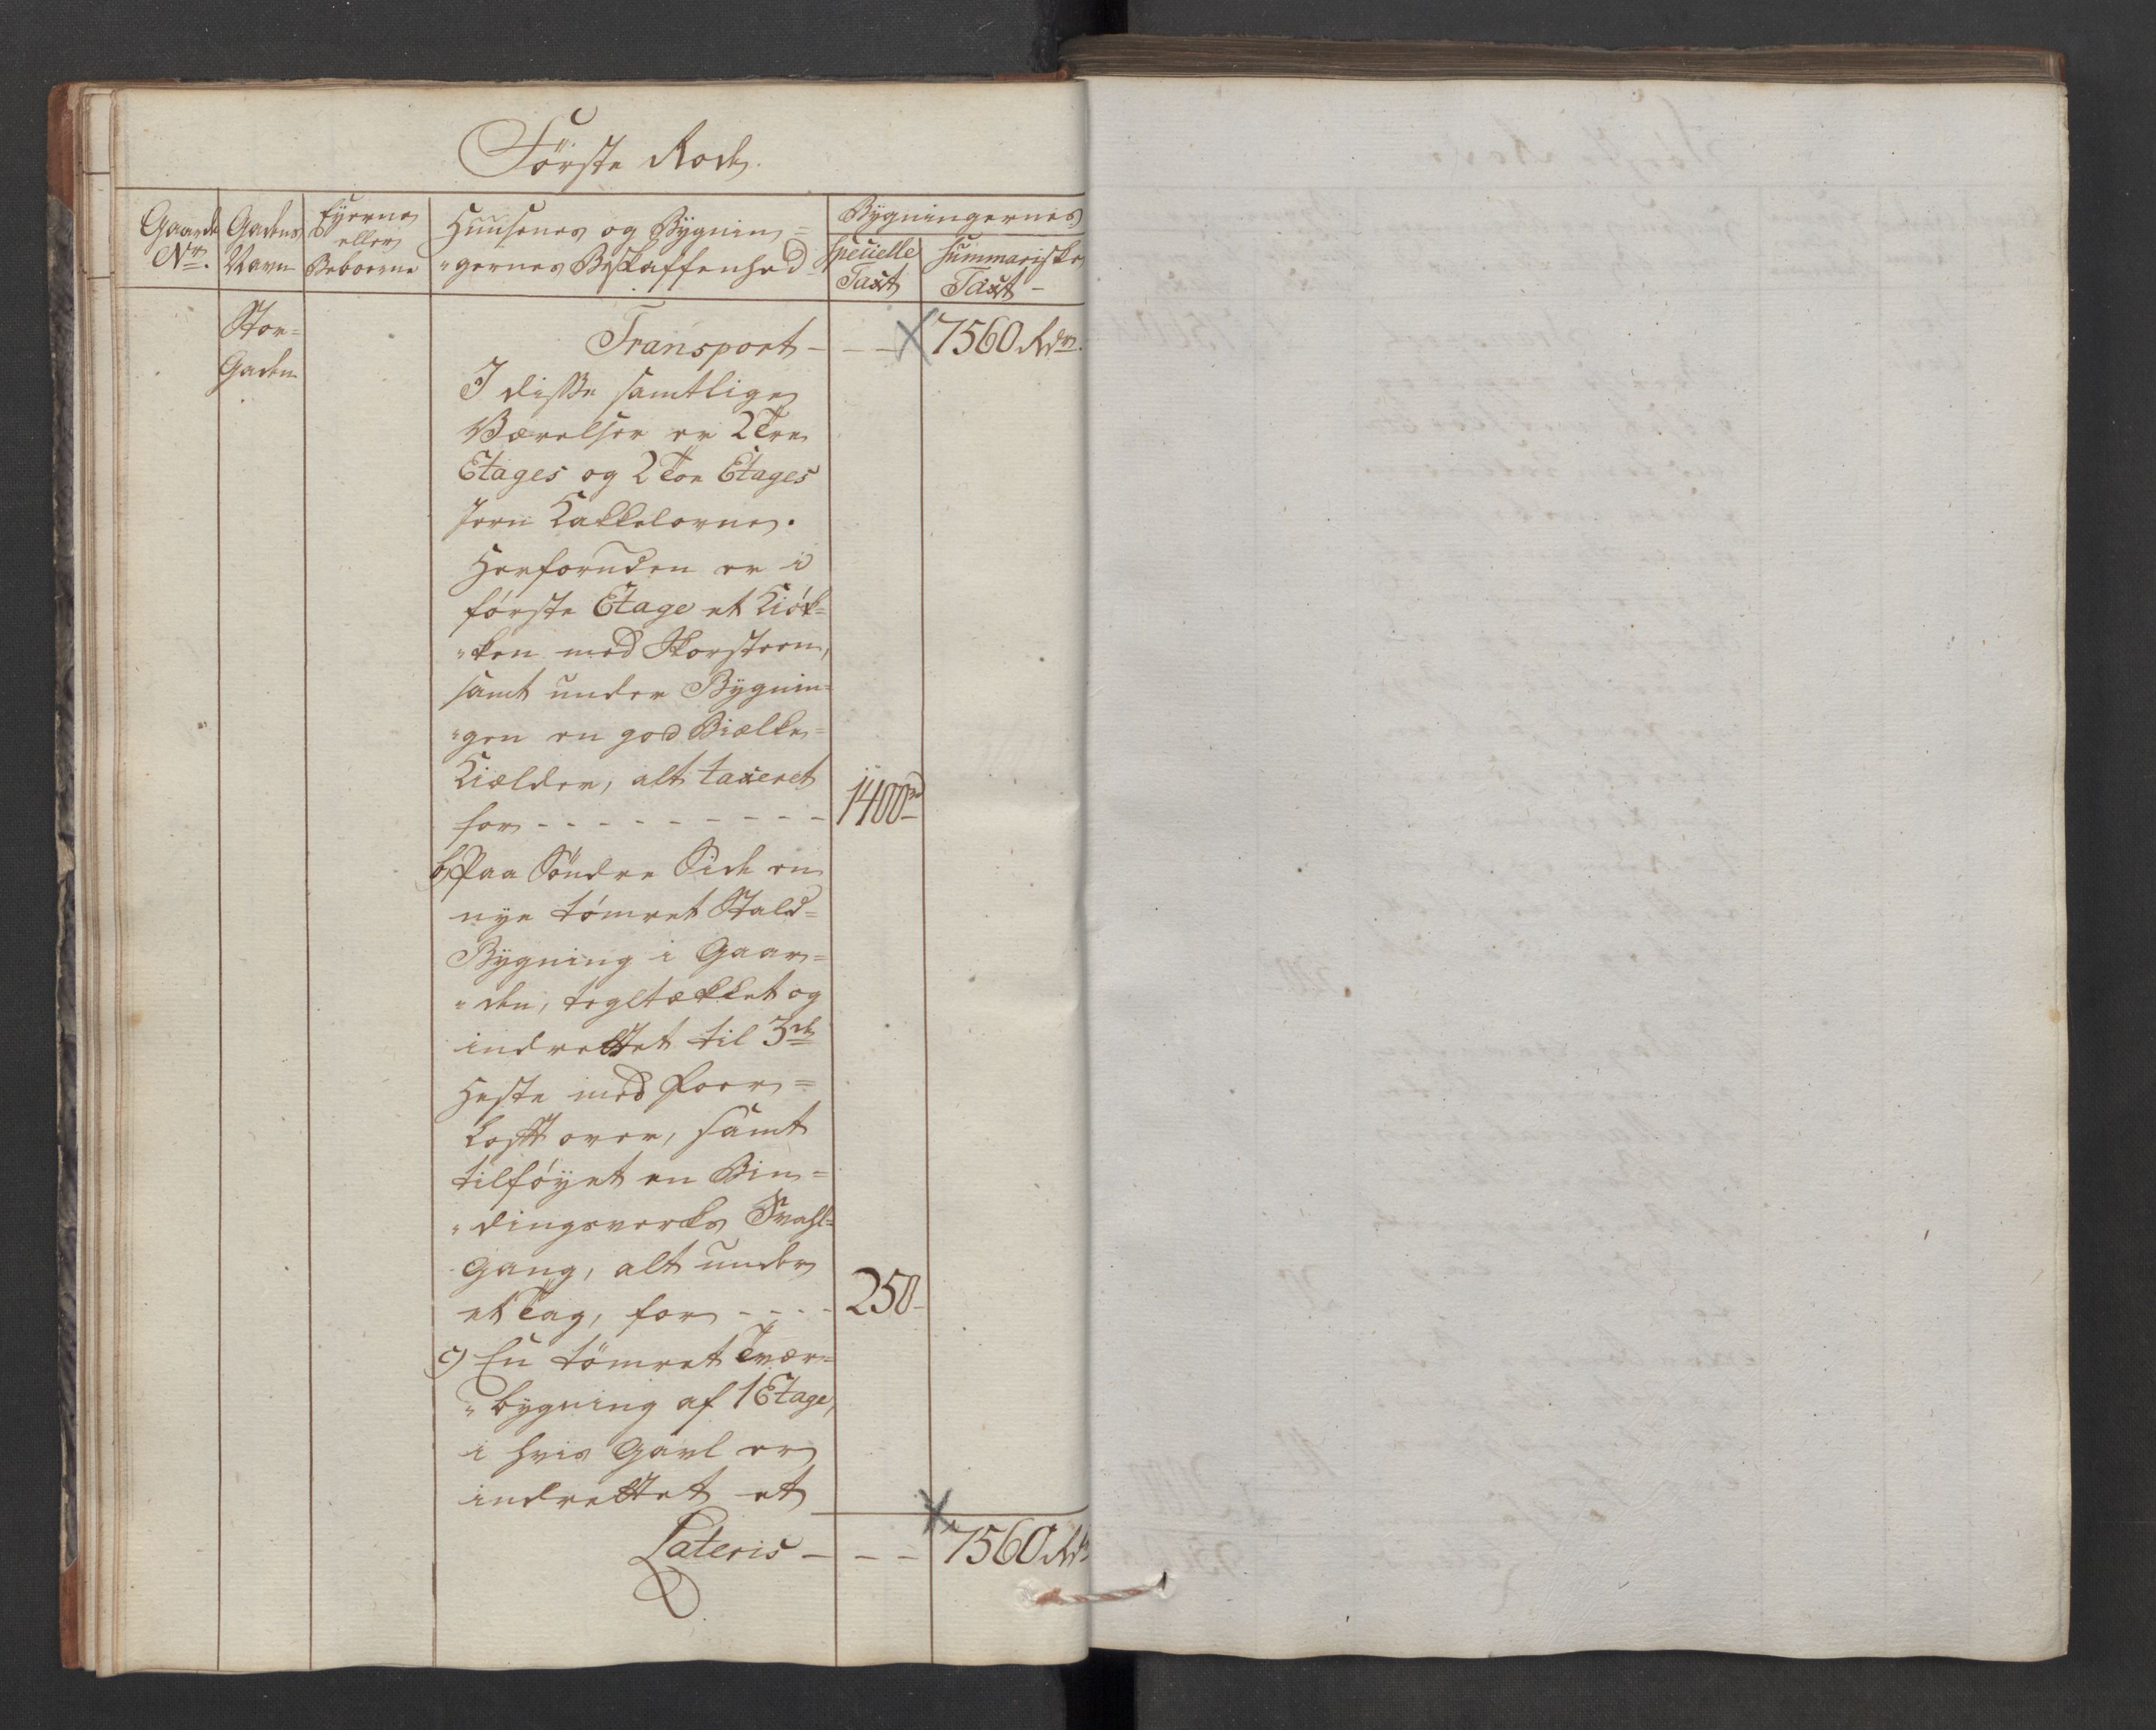 Första Rode.
Gaards Nr.
Gadens Navn
Eyerne eller Beboerne
Huusenes og Bygnin=
"gernes Beskaffenhed
Bygningernes
specielle Taxt
summariske Taxt -
Stor=
Gaden
Transport - - - 7560 Rdr.
I disse samtlige
Værelser er 2 Tre
Etages og 2 Toe Etages
Jern Kakkelovne.
Herforuden er i
förste Etage et Kiök=
"ken med Skorsteen,
samt under Bygnin=
"gen en god Bielke=
Kielder, alt taxeret
for - - - - - - - - - 1400 rd
b) Paa Söndre Side en
nye tömret Stald=
Bygning i Gaar=
"den, tegltækket og
indrettet til 3de
Heste med Foer=
Loft over, samt
tilföyet en Bin=
"dingsverks Svahl=
Gang, alt under
et Tag, for - - - - 250 -
c) En tömret Tvær=
"bygning af 1 Etage,
i hvis Gavl er
indrettet et
Lateris - - - 7560 Rd